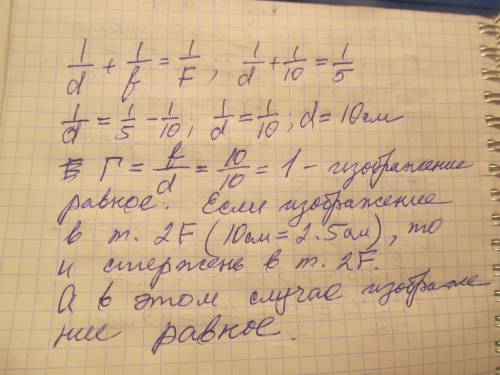 1/d + 1/f = 1/F; 1/d + 1/10 = 1/5
1/d = 1/5 - 1/10; 1/d = 1/10; d = 10см
Г = f/d = 10/10 = 1 - изображение
равное. Если изображение
в т. 2F (10см = 2·5см), то
и стержень в т. 2F.
А в этом случае изображе
ние равное.